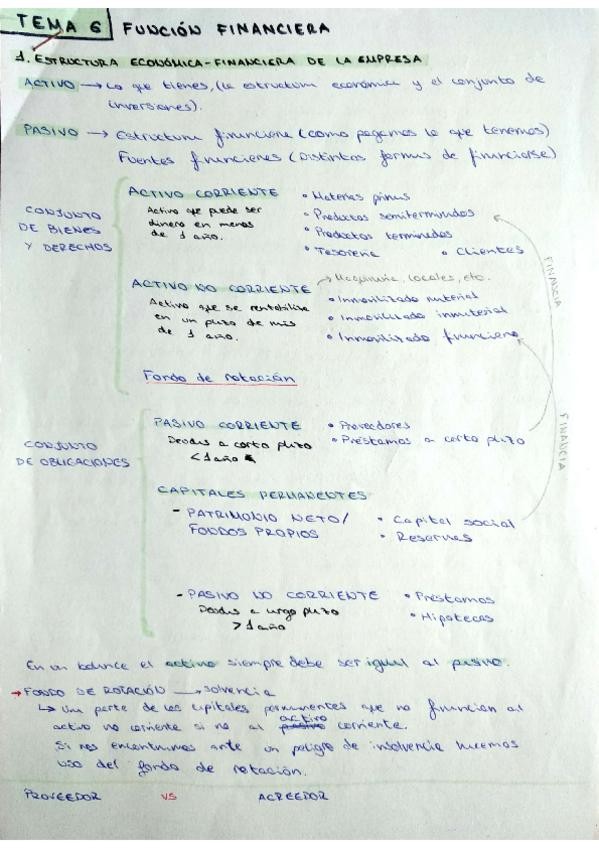 TEMA 6 FUNCIÓN FINANCIERA
1. ESTRUCTURA ECONÓMICA-FINANCIERA DE LA EMPRESA
ACTIVO → Lo que tienes, (la estructura económica y el conjunto de
inversiones).
PASIVO → Estructura financiera (como pagamos lo que tenemos)
Fuentes financieras (Distintas formas de financiarse)
CONJUNTO
DE BIENES
Y DERECHOS
ACTIVO CORRIENTE
Activo que puede ser
dinero en menos
de 1 año.
• Materias primas
• Productos semiterminados
• Productos terminados
• Tesoreria • Clientes
ACTIVO NO CORRIENTE
Activo que se rentabiliza
en un plazo de más
de 1 año.
→ Maquinaria, locales, etc.
• Inmovilizado material
• Inmovilizado inmaterial
• Inmovilizado financiero
FINANCIA
Fondo de rotación
CONJUNTO
DE OBLIGACIONES
PASIVO CORRIENTE
Deudas a corto plazo
< 1 año
• Proveedores
• Préstamos a corto plazo
FINANCIA
CAPITALES PERMANENTES
- PATRIMONIO NETO/
FONDOS PROPIOS
• Capital social
• Reservas
- PASIVO NO CORRIENTE
Deudas a largo plazo
> 1 año
• Préstamos
• Hipotecas
En un balance el activo siempre debe ser igual al pasivo.
→ FONDO DE ROTACIÓN → solvencia
↳ Una parte de los capitales permanentes que no financian al
activo no corriente si no al pasivo activo corriente.
Si nos encontramos ante un peligro de insolvencia hacemos
uso del fondo de rotación.
PROVEEDOR VS ACREEDOR